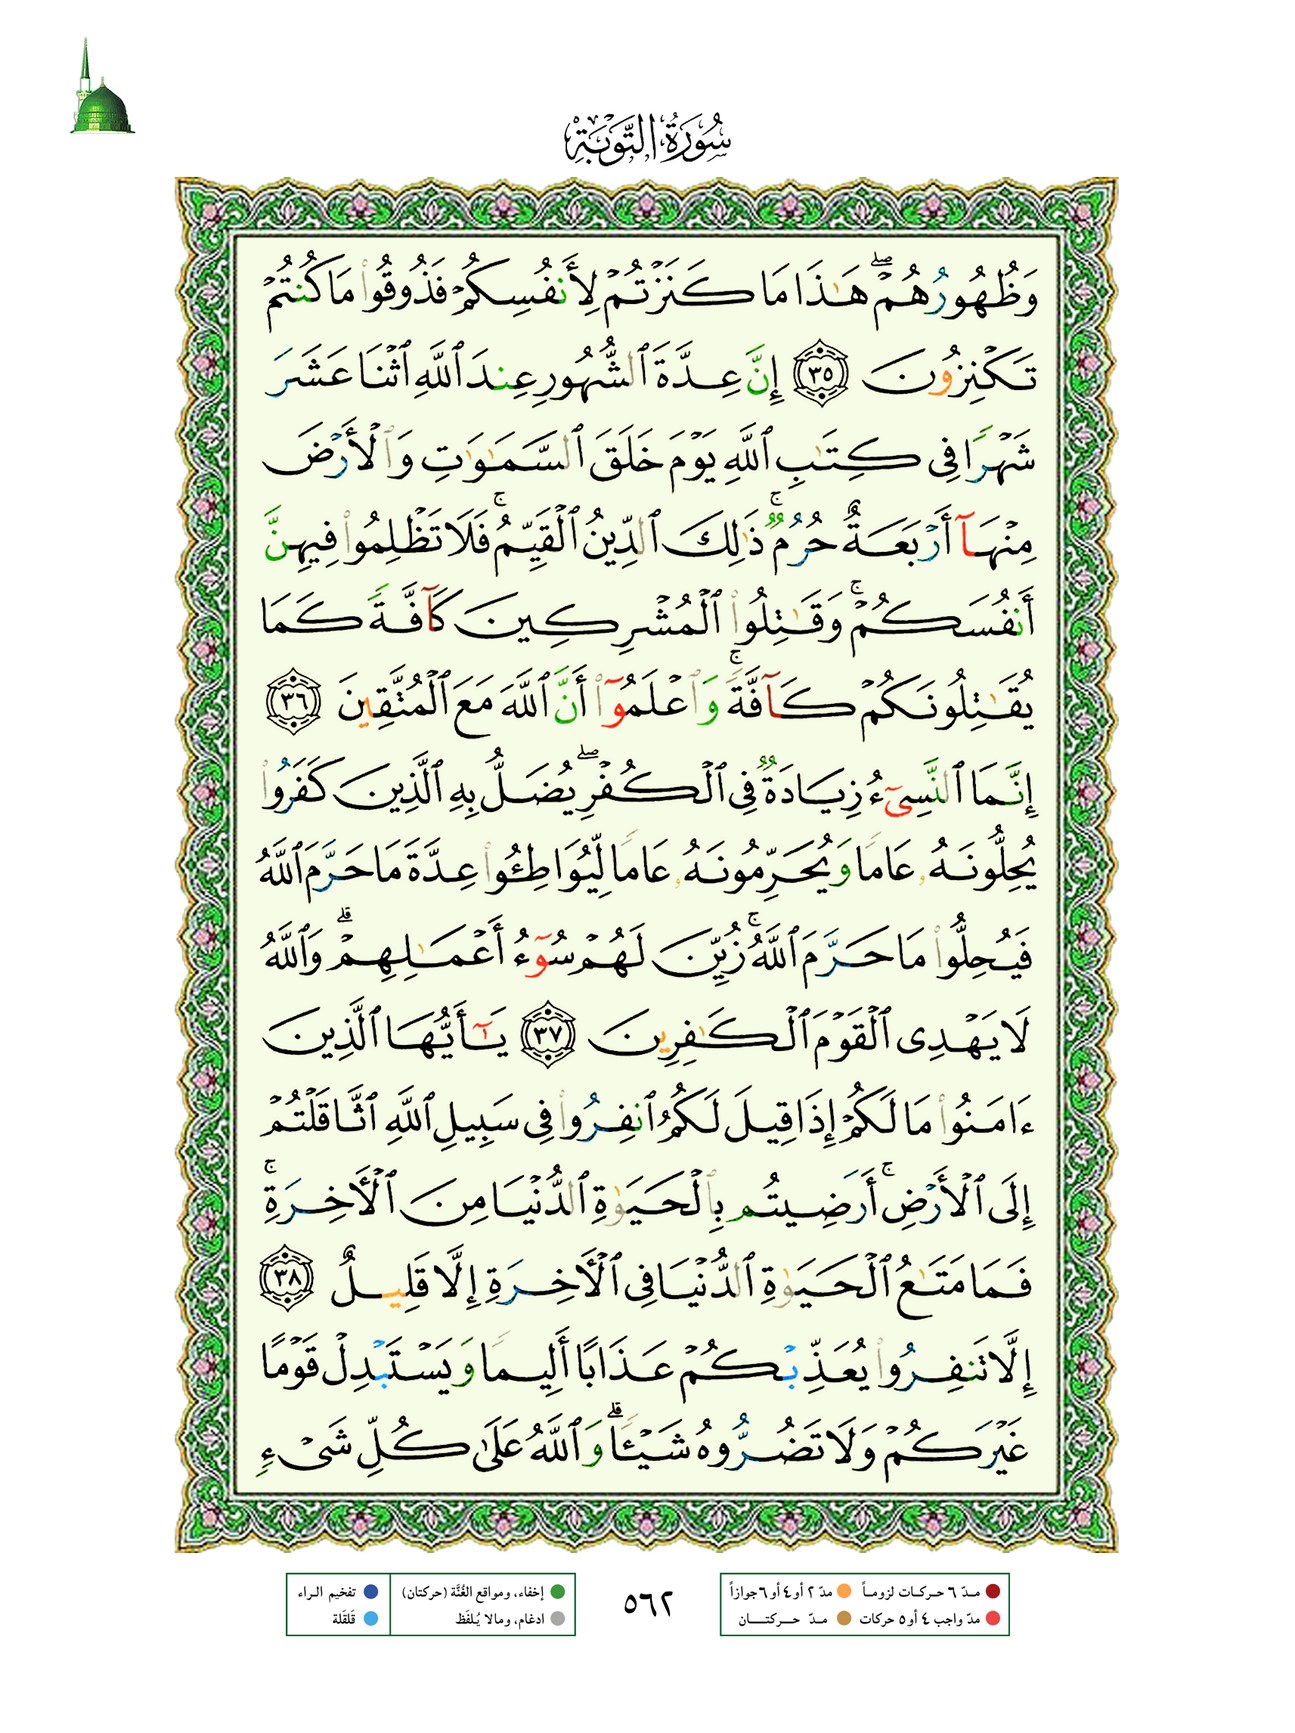 سُورَةُ التَّوْبَةِ
وَظُهُورُهُمْ ۖ هَـٰذَا مَا كَنَزْتُمْ لِأَنفُسِكُمْ فَذُوقُوا۟ مَا كُنتُمْ
تَكْنِزُونَ ۝٣٥ إِنَّ عِدَّةَ ٱلشُّهُورِ عِندَ ٱللَّهِ ٱثْنَا عَشَرَ
شَهْرًا فِى كِتَـٰبِ ٱللَّهِ يَوْمَ خَلَقَ ٱلسَّمَـٰوَٰتِ وَٱلْأَرْضَ
مِنْهَآ أَرْبَعَةٌ حُرُمٌ ۚ ذَٰلِكَ ٱلدِّينُ ٱلْقَيِّمُ ۚ فَلَا تَظْلِمُوا۟ فِيهِنَّ
أَنفُسَكُمْ ۚ وَقَـٰتِلُوا۟ ٱلْمُشْرِكِينَ كَآفَّةً كَمَا
يُقَـٰتِلُونَكُمْ كَآفَّةً ۚ وَٱعْلَمُوٓا۟ أَنَّ ٱللَّهَ مَعَ ٱلْمُتَّقِينَ ۝٣٦
إِنَّمَا ٱلنَّسِىٓءُ زِيَادَةٌ فِى ٱلْكُفْرِ ۖ يُضَلُّ بِهِ ٱلَّذِينَ كَفَرُوا۟
يُحِلُّونَهُۥ عَامًا وَيُحَرِّمُونَهُۥ عَامًا لِّيُوَاطِـُٔوا۟ عِدَّةَ مَا حَرَّمَ ٱللَّهُ
فَيُحِلُّوا۟ مَا حَرَّمَ ٱللَّهُ ۚ زُيِّنَ لَهُمْ سُوٓءُ أَعْمَـٰلِهِمْ ۗ وَٱللَّهُ
لَا يَهْدِى ٱلْقَوْمَ ٱلْكَـٰفِرِينَ ۝٣٧ يَـٰٓأَيُّهَا ٱلَّذِينَ
ءَامَنُوا۟ مَا لَكُمْ إِذَا قِيلَ لَكُمُ ٱنفِرُوا۟ فِى سَبِيلِ ٱللَّهِ ٱثَّاقَلْتُمْ
إِلَى ٱلْأَرْضِ ۚ أَرَضِيتُم بِٱلْحَيَوٰةِ ٱلدُّنْيَا مِنَ ٱلْـَٔاخِرَةِ ۚ
فَمَا مَتَـٰعُ ٱلْحَيَوٰةِ ٱلدُّنْيَا فِى ٱلْـَٔاخِرَةِ إِلَّا قَلِيلٌ ۝٣٨
إِلَّا تَنفِرُوا۟ يُعَذِّبْكُمْ عَذَابًا أَلِيمًا وَيَسْتَبْدِلْ قَوْمًا
غَيْرَكُمْ وَلَا تَضُرُّوهُ شَيْـًٔا ۗ وَٱللَّهُ عَلَىٰ كُلِّ شَىْءٍ
مـدّ ٦ حـركـات لزومـاً مدّ ٢ أو ٤ أو ٦ جوازاً
مدّ واجب ٤ أو ٥ حركات مـدّ حـــركتـــــان
٥٦٢
إخفاء، ومواقع الغُنَّة (حركتان) تفخيم الـراء
ادغام، ومالا يُـلفَظ قَلقَلة